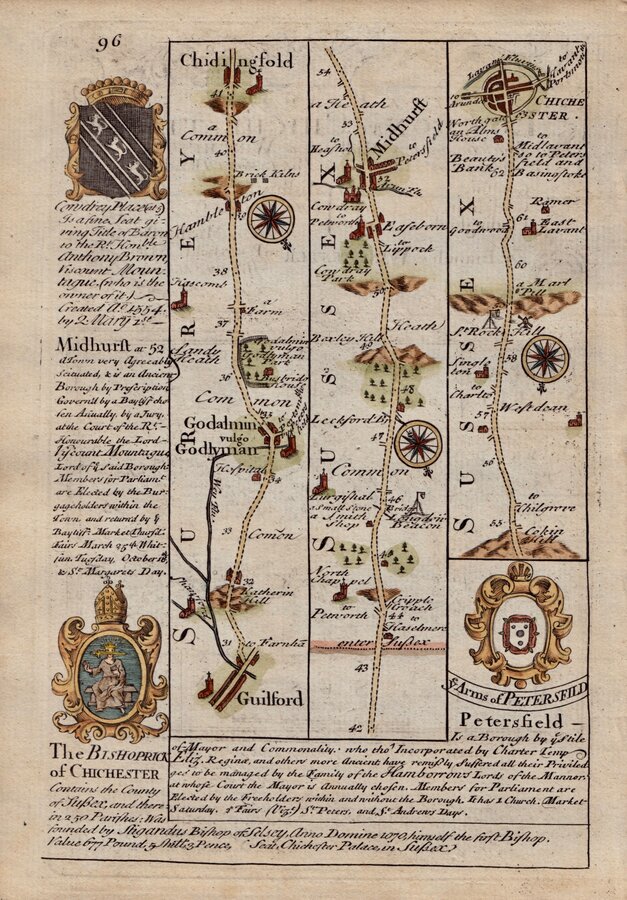 96
Cowdrey Place (49)
Is a fine Seat gi-
ving Title of Baron
to the Rt. Honble.
Anthony Brown
Viscount Moun-
tague, (who is the
owner of it)
Created Ao. 1554
by Q: Mary 1st
Midhurst at 52
A Town very Agreeably
Scituated, & is an Ancient
Borough by Prescription
Govern'd by a Bayliff cho-
sen Anually, by a Jury,
at the Court of the Rt.
Honourable the Lord
Viscount Mountague
Lord of ye. Said Borough
Members for Parliamt.
are Elected by the Bur-
gageholders within the
Town and return'd by ye
Bayliff. Market Thursd.
Fairs March 25th Whit-
sun Tuesday, October 18,
& St. Margarets Day.
The BISHOPRICK
of CHICHESTER
Contains the County
of Sussex, and there-
in 250 Parishes; Was
founded by Stigandus Bishop of Selsey, Anno Domine 1070, himself the first Bishop.
Value 677 Pound, 5 Shill; 3 Pence, Seat, Chichester Palace, in Sussex
Chidingfold
41
a
Common
40
Brick Kilns
Hambleton
39
38
Hascomb
a
Farm
37
Sandy
Heath
Godalmin
vulgo
Godlyman
Park
36
Busbridg
House
Common
35
Godalmin
vulgo
Godlyman
34
Hospital
Way flu
33
Comon
32
Katherin
Hill
31
to Farnha
Guilford
SURREY
54
a Heath
53
Midhurst
to
Petersfield
52
Cowdray
to
Petworth
Easeborn
to
Lippock
Cowdray
Park
50
Heath
Boxley Hill
49
48
Leckford Br
47
Common
Lurgishal
46
a Small Stone
a Smith
Shop
Brick
Beacon
45
North
Chappel
to
Petworth
Cripple
Croach
44 to
Haselmere
enter Sussex
43
42
SUSSEX
Lavant Fluvius
to
Lavant
Portsmou
to
Arunde
CHICHE
STER.
Northgate
an Alms
House
63
to
Midlavant
& to Peters
field and
Basingstoke
Beauty's
Bank
62
Ramer
to
Goodwood
61
East
Lavant
60
a Marl
Pitt
59
St. Rook Hill
Single
ton
58
to
Charlto
57
Westdean
56
to
Chilgrove
55
Cokin
Hill
SUSSEX
ye. Arms of PETERSFEILD
Petersfield
Is a Borough by ye. Stile
of Mayor and Commonality; who tho' Incorporated by Charter Temp
Eliz. Reginæ, and others more Ancient have remissly Suffered all their Priviled
ges to be managed by the Family of the Hamborrows Lords of the Mannor;
at whose Court the Mayor is Annually chosen. Members for Parliament are
Elected by the Freeholders within and without the Borough. It has 1 Church. Market
Saturday. 2 Fairs (Viz:) St. Peters, and St. Andrews Days.